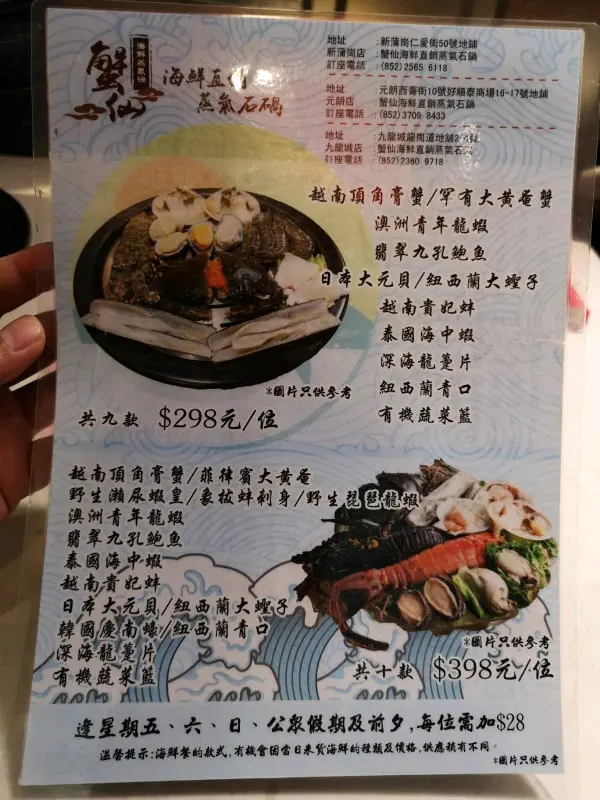 海鮮蒸氣鍋
蟹仙
海鮮直
蒸氣石鍋
地址 : 新蒲崗仁愛街50號地鋪
新蒲崗店 : 蟹仙海鮮直銷蒸氣石鍋
訂座電話 : (852)2565 6118
地址 : 元朗西菁街10號好順泰商場16-17號地鋪
元朗店 : 蟹仙海鮮直銷蒸氣石鍋
訂座電話 : (852)3709 8433
地址 : 九龍城龍崗道地舖
九龍城店 : 蟹仙海鮮直銷蒸氣石鍋
訂座電話 : (852)2360 9718
越南頂角膏蟹/罕有大黃奄蟹
澳洲青年龍蝦
翡翠九孔鮑魚
日本大元貝/紐西蘭大蟶子
越南貴妃蚌
泰國海中蝦
深海龍躉片
紐西蘭青口
有機蔬菜籃
*圖片只供參考
共九款 $298元/位
越南頂角膏蟹/菲律賓大黃奄
野生瀨尿蝦皇/象拔蚌刺身/野生琵琶龍蝦
澳洲青年龍蝦
翡翠九孔鮑魚
泰國海中蝦
越南貴妃蚌
日本大元貝/紐西蘭大蟶子
韓國慶南蠔/紐西蘭青口
深海龍躉片
有機蔬菜籃
*圖片只供參考
共十款 $398元/位
逢星期五、六、日、公眾假期及前夕,每位需加$28
溫馨提示:海鮮餐的款式,有機會因當日來貨海鮮的種類及價格,供應稍有不同。
*圖片只供參考